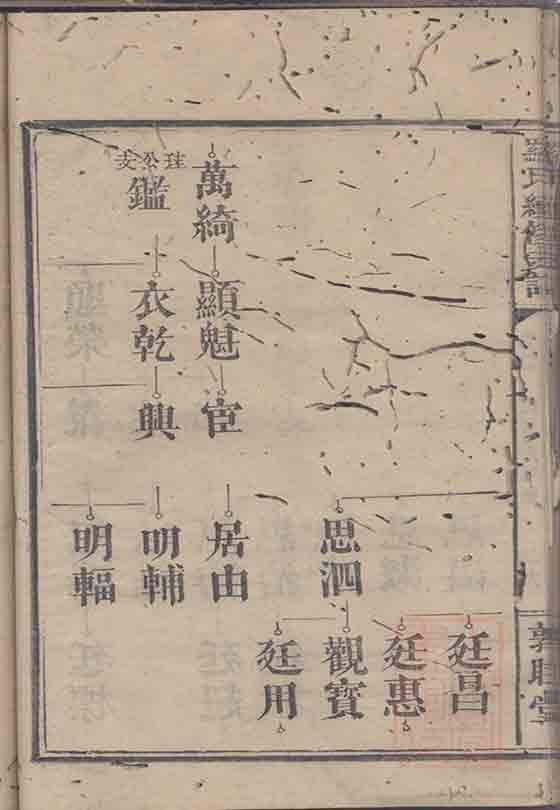 羅氏續修宗譜
敦睦堂
廷昌
廷惠
思泗
觀寶
廷用
萬綺
顯魁
宦
居由
珪公支
鑑
衣乾
興
明輔
明輻